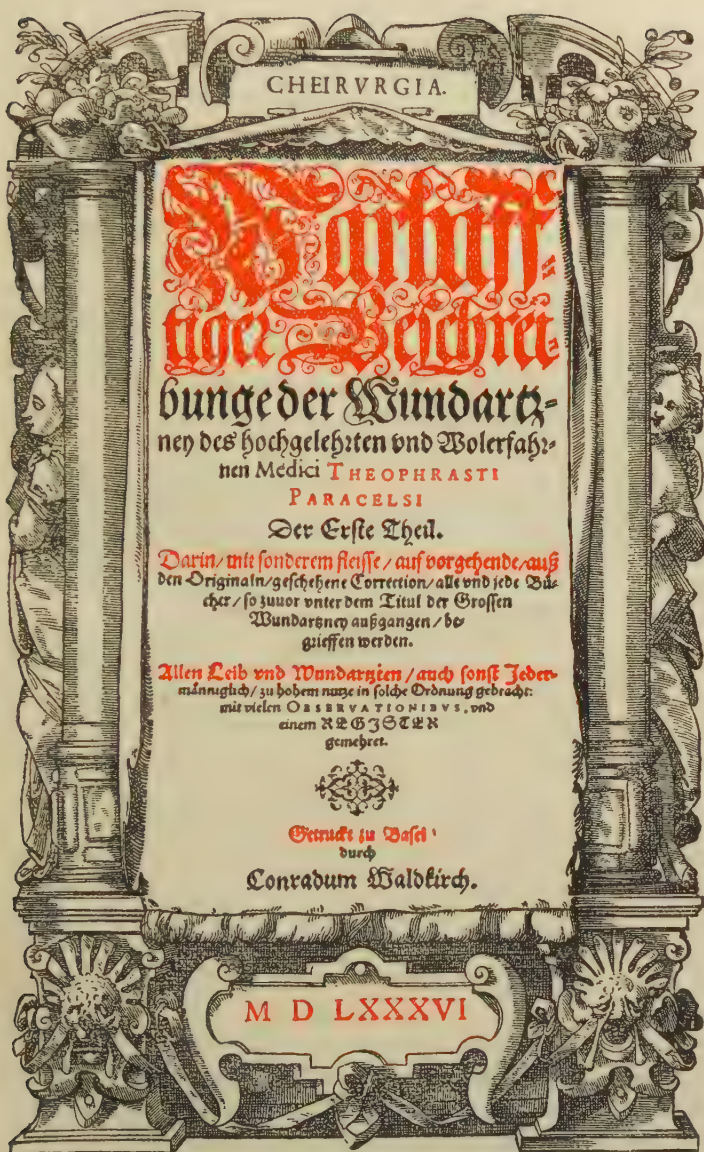 CHEIRVRGIA.
Warhaff-
tiger Beschrei-
bunge der Wundartz-
ney des hochgelehrten vnd Wolerfahr-
nen Medici THEOPHRASTI
PARACELSI
Der Erste Theil.
Darin/ mit sonderem fleisse / auf vorgehende/ auß
den Originaln/ geschehene Correction/ alle vnd jede Bü-
cher / so zuuor vnter dem Titul der Grossen
Wundartzney außgangen / be-
grieffen werden.
Allen Leib vnd Wundartzten / auch sonst Jeder-
männiglich/ zu hohem nutze in solche Ordnung gebracht:
mit vielen OBSERVATIONIBVS, vnd
einem REGISTER
gemehret.
Getruckt zu Basel
durch
Conradum Waldkirch.
M D LXXXVI